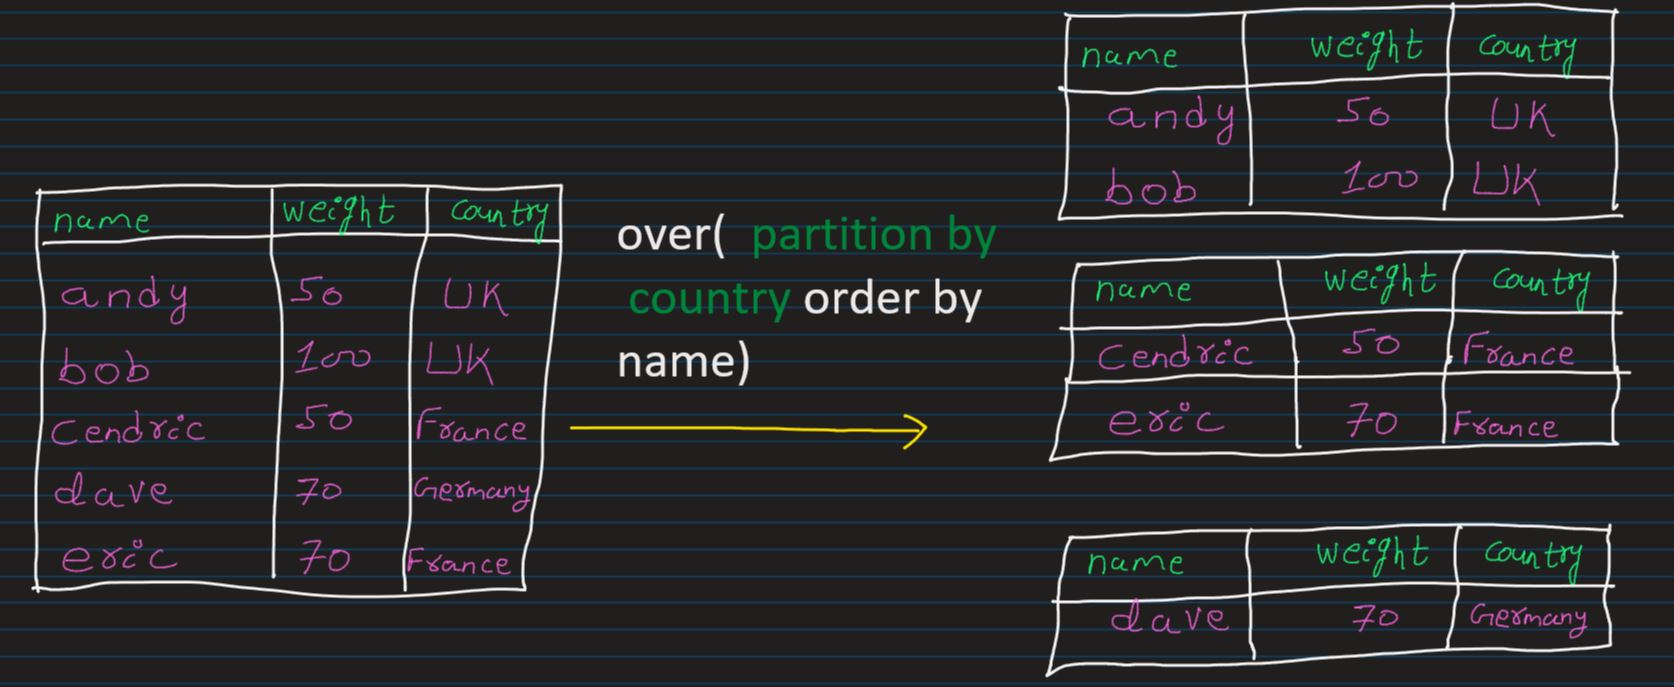 name weight country
andy 50 UK
bob 100 UK
Cendric 50 France
dave 70 Germany
eric 70 France
over( partition by
country order by
name)
name weight country
andy 50 UK
bob 100 UK
name weight country
Cendric 50 France
eric 70 France
name weight country
dave 70 Germany